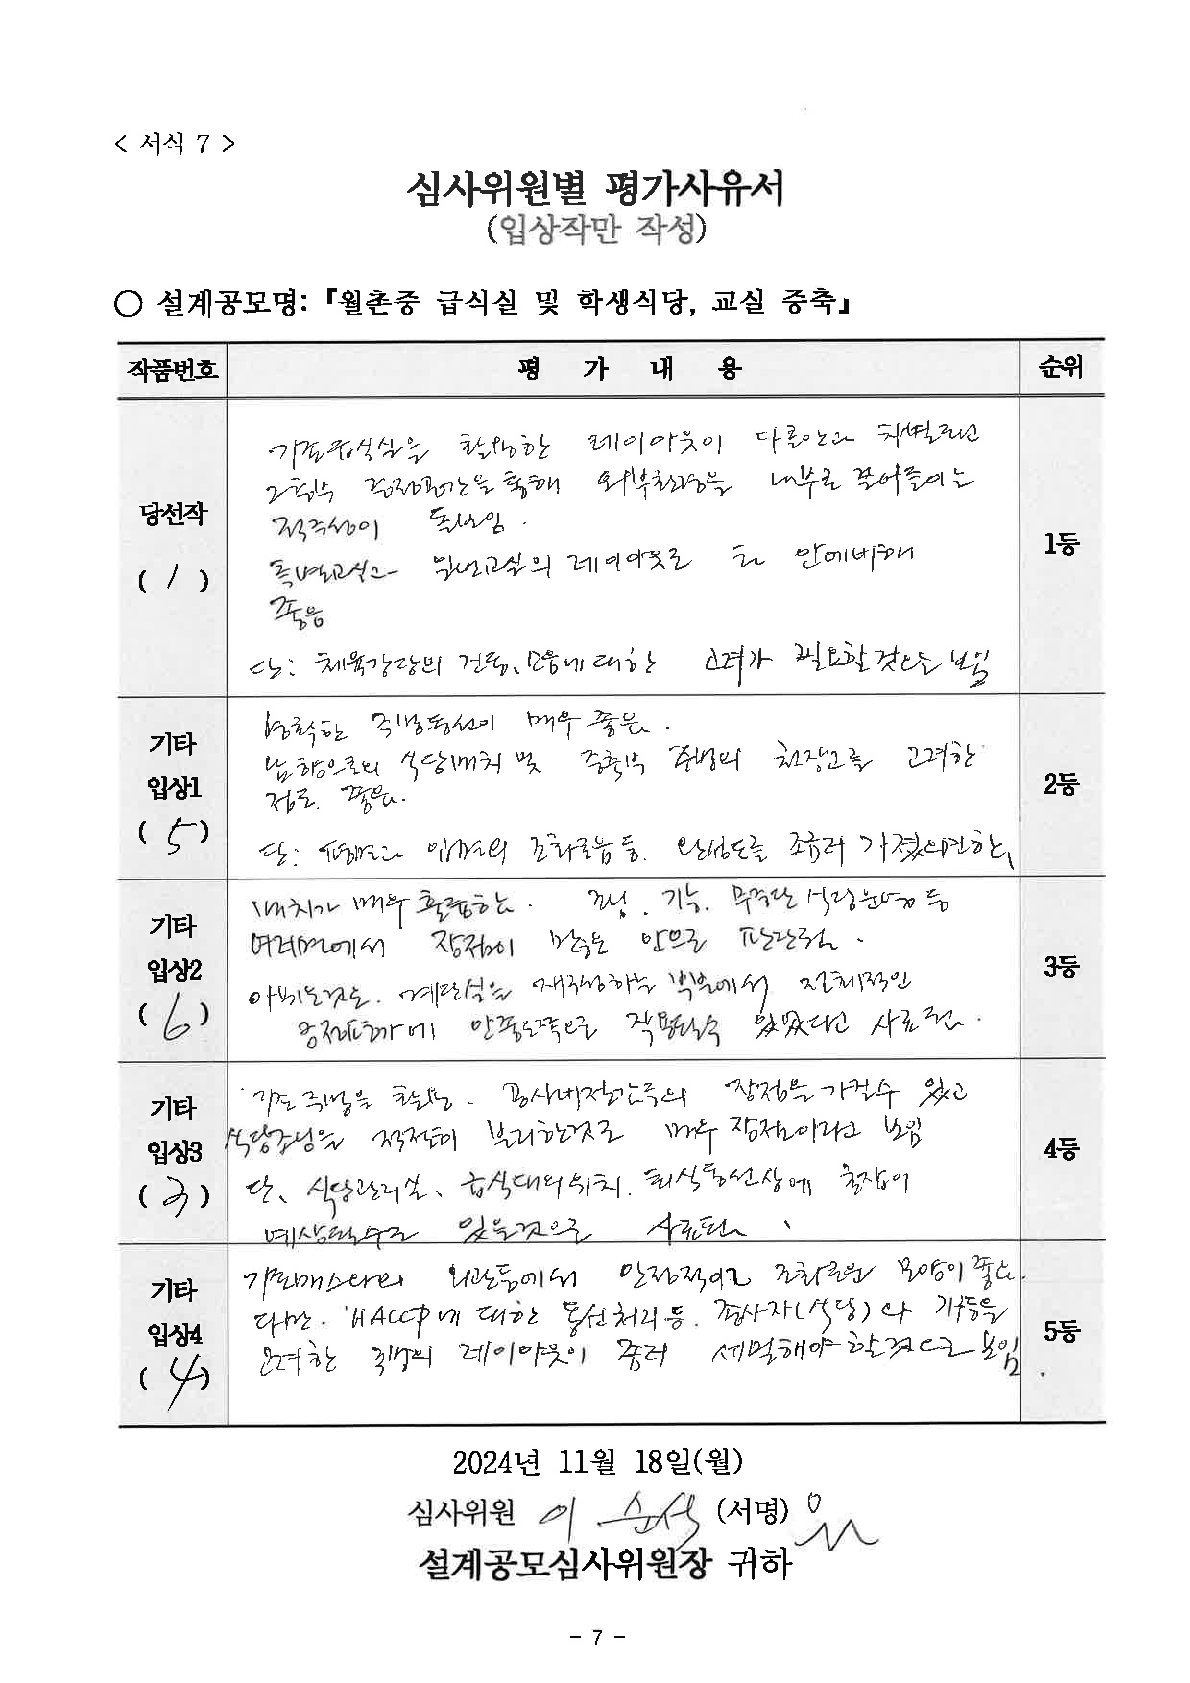 < 서식 7 >
심사위원별 평가사유서
(입상작만 작성)
○ 설계공모명:『월촌중 급식실 및 학생식당, 교실 증축』
작품번호 평 가 내 용 순위
당선작
( 1 )
기존급식실을 활용한 레이아웃이 다른안과 차별되고
중정공간을 통해 외부환경을 내부로 끌어들이는
적극성이 돋보임.
특별교실과 일반교실의 레이아웃도 타 안에비해
좋음
단: 체육강당의 대한 고려가 필요할것으로 보임
1등
기타
입상1
( 5 )
명확한 주방동선이 매우 좋음.
남향으로의 식당배치 및 증축부 주방의 천장고를 고려한
점도 좋음.
단: 평면과 입면의 조화로움 등. 완성도를 조금더 가졌으면한
2등
기타
입상2
( 6 )
배치가 매우 훌륭하
기능. 식당운영 등
여러면에서 장점이 많은 안으로 판단됨.
아쉬운것은. 계단실을 재구성하는 부분에서 전체적인
안좋은쪽으로 작용될수 있었다고 사료됨.
3등
기타
입상3
( 3 )
기존 주방을 활용. 공사비절감등의 장점을 가질수 있고
식당조닝을 적절히 분리한것도 매우 장점이라고 보임
단, 식당관리실, 급식대의위치. 퇴식동선상에 혼잡이
예상될수도 있을것으로 사료됨.
4등
기타
입상4
( 4 )
기존매스와의 외관등에서 안정적이고 조화로운 모양이 좋으
다만. HACCP에 대한 동선처리 등. 검사자(식당)와 기능을
고려한 주방의 레이아웃이 좀더 세밀해야 할것으로 보임.
5등
2024년 11월 18일(월)
심사위원 이 순석 (서명)
설계공모심사위원장 귀하
- 7 -